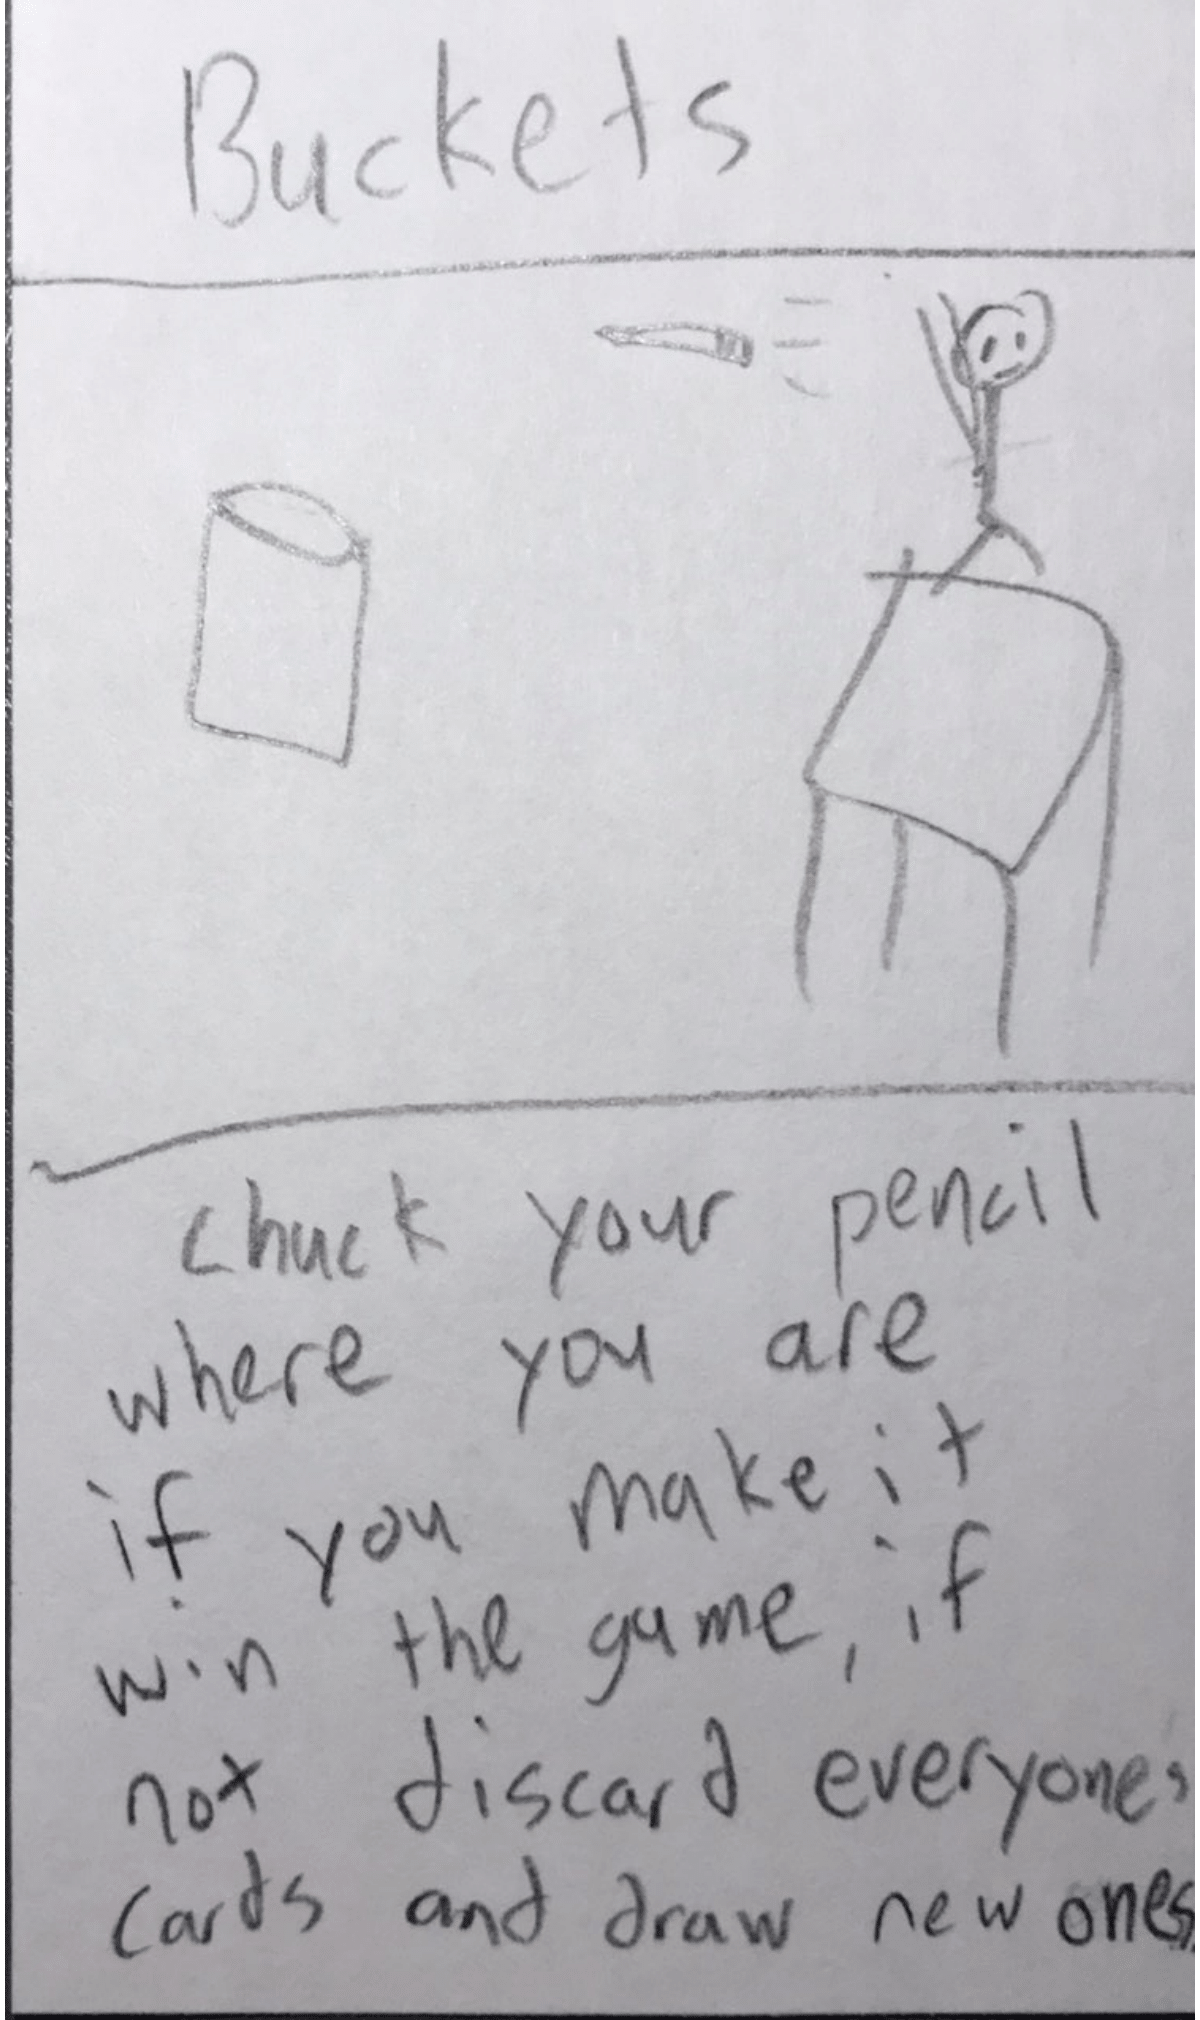 Buckets
chuck your pencil
where you are
if you make it
win the game, if
not discard everyones
cards and draw new ones